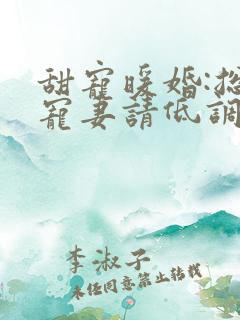 甜寵暖婚:
寵妻請低調
李淑子
未任同意禁止转载